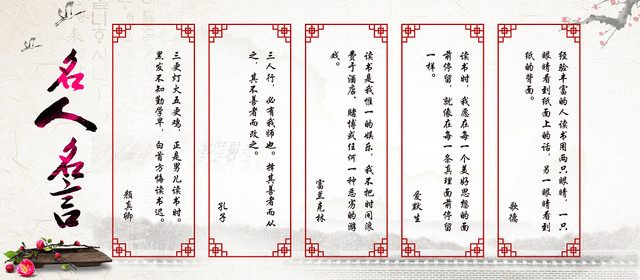 名人名言
三更灯火五更鸡，正是男儿读书时。
黑发不知勤学早，白首方悔读书迟。
颜真卿
三人行，必有我师也。择其善者而从
之，其不善者而改之。
孔子
读书是我惟一的娱乐，我不把时间浪
费于酒店、赌博或任何一种恶劣的游
戏。
富兰克林
读书时，我愿在每一个美好思想的面
前停留，就像在每一条真理面前停留
一样。
爱默生
经验丰富的人读书用两只眼睛，一只
眼睛看到纸面上的话，另一眼睛看到
纸的背面。
歌德